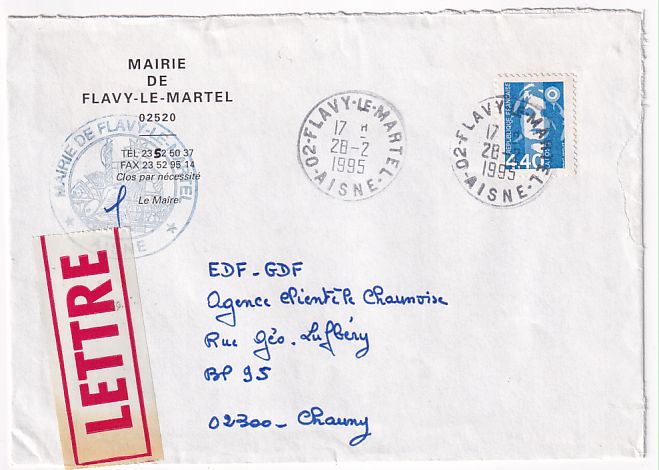 MAIRIE
DE
FLAVY-LE-MARTEL
02520
TÉL 23 52 50 37
FAX 23 52 95 14
Clos par nécessité
Le Maire,
MAIRIE DE FLAVY-LE-MARTEL
02-FLAVY-LE-MARTEL-AISNE-
17 H
28-2
1995
REPUBLIQUE FRANÇAISE
4,40
02-FLAVY-LE-MARTEL-AISNE-
17
28
1995
LETTRE
EDF-GDF
Agence Clientèle Chaunoise
Rue Géo. Lufbéry
BP 95
02300 - Chauny